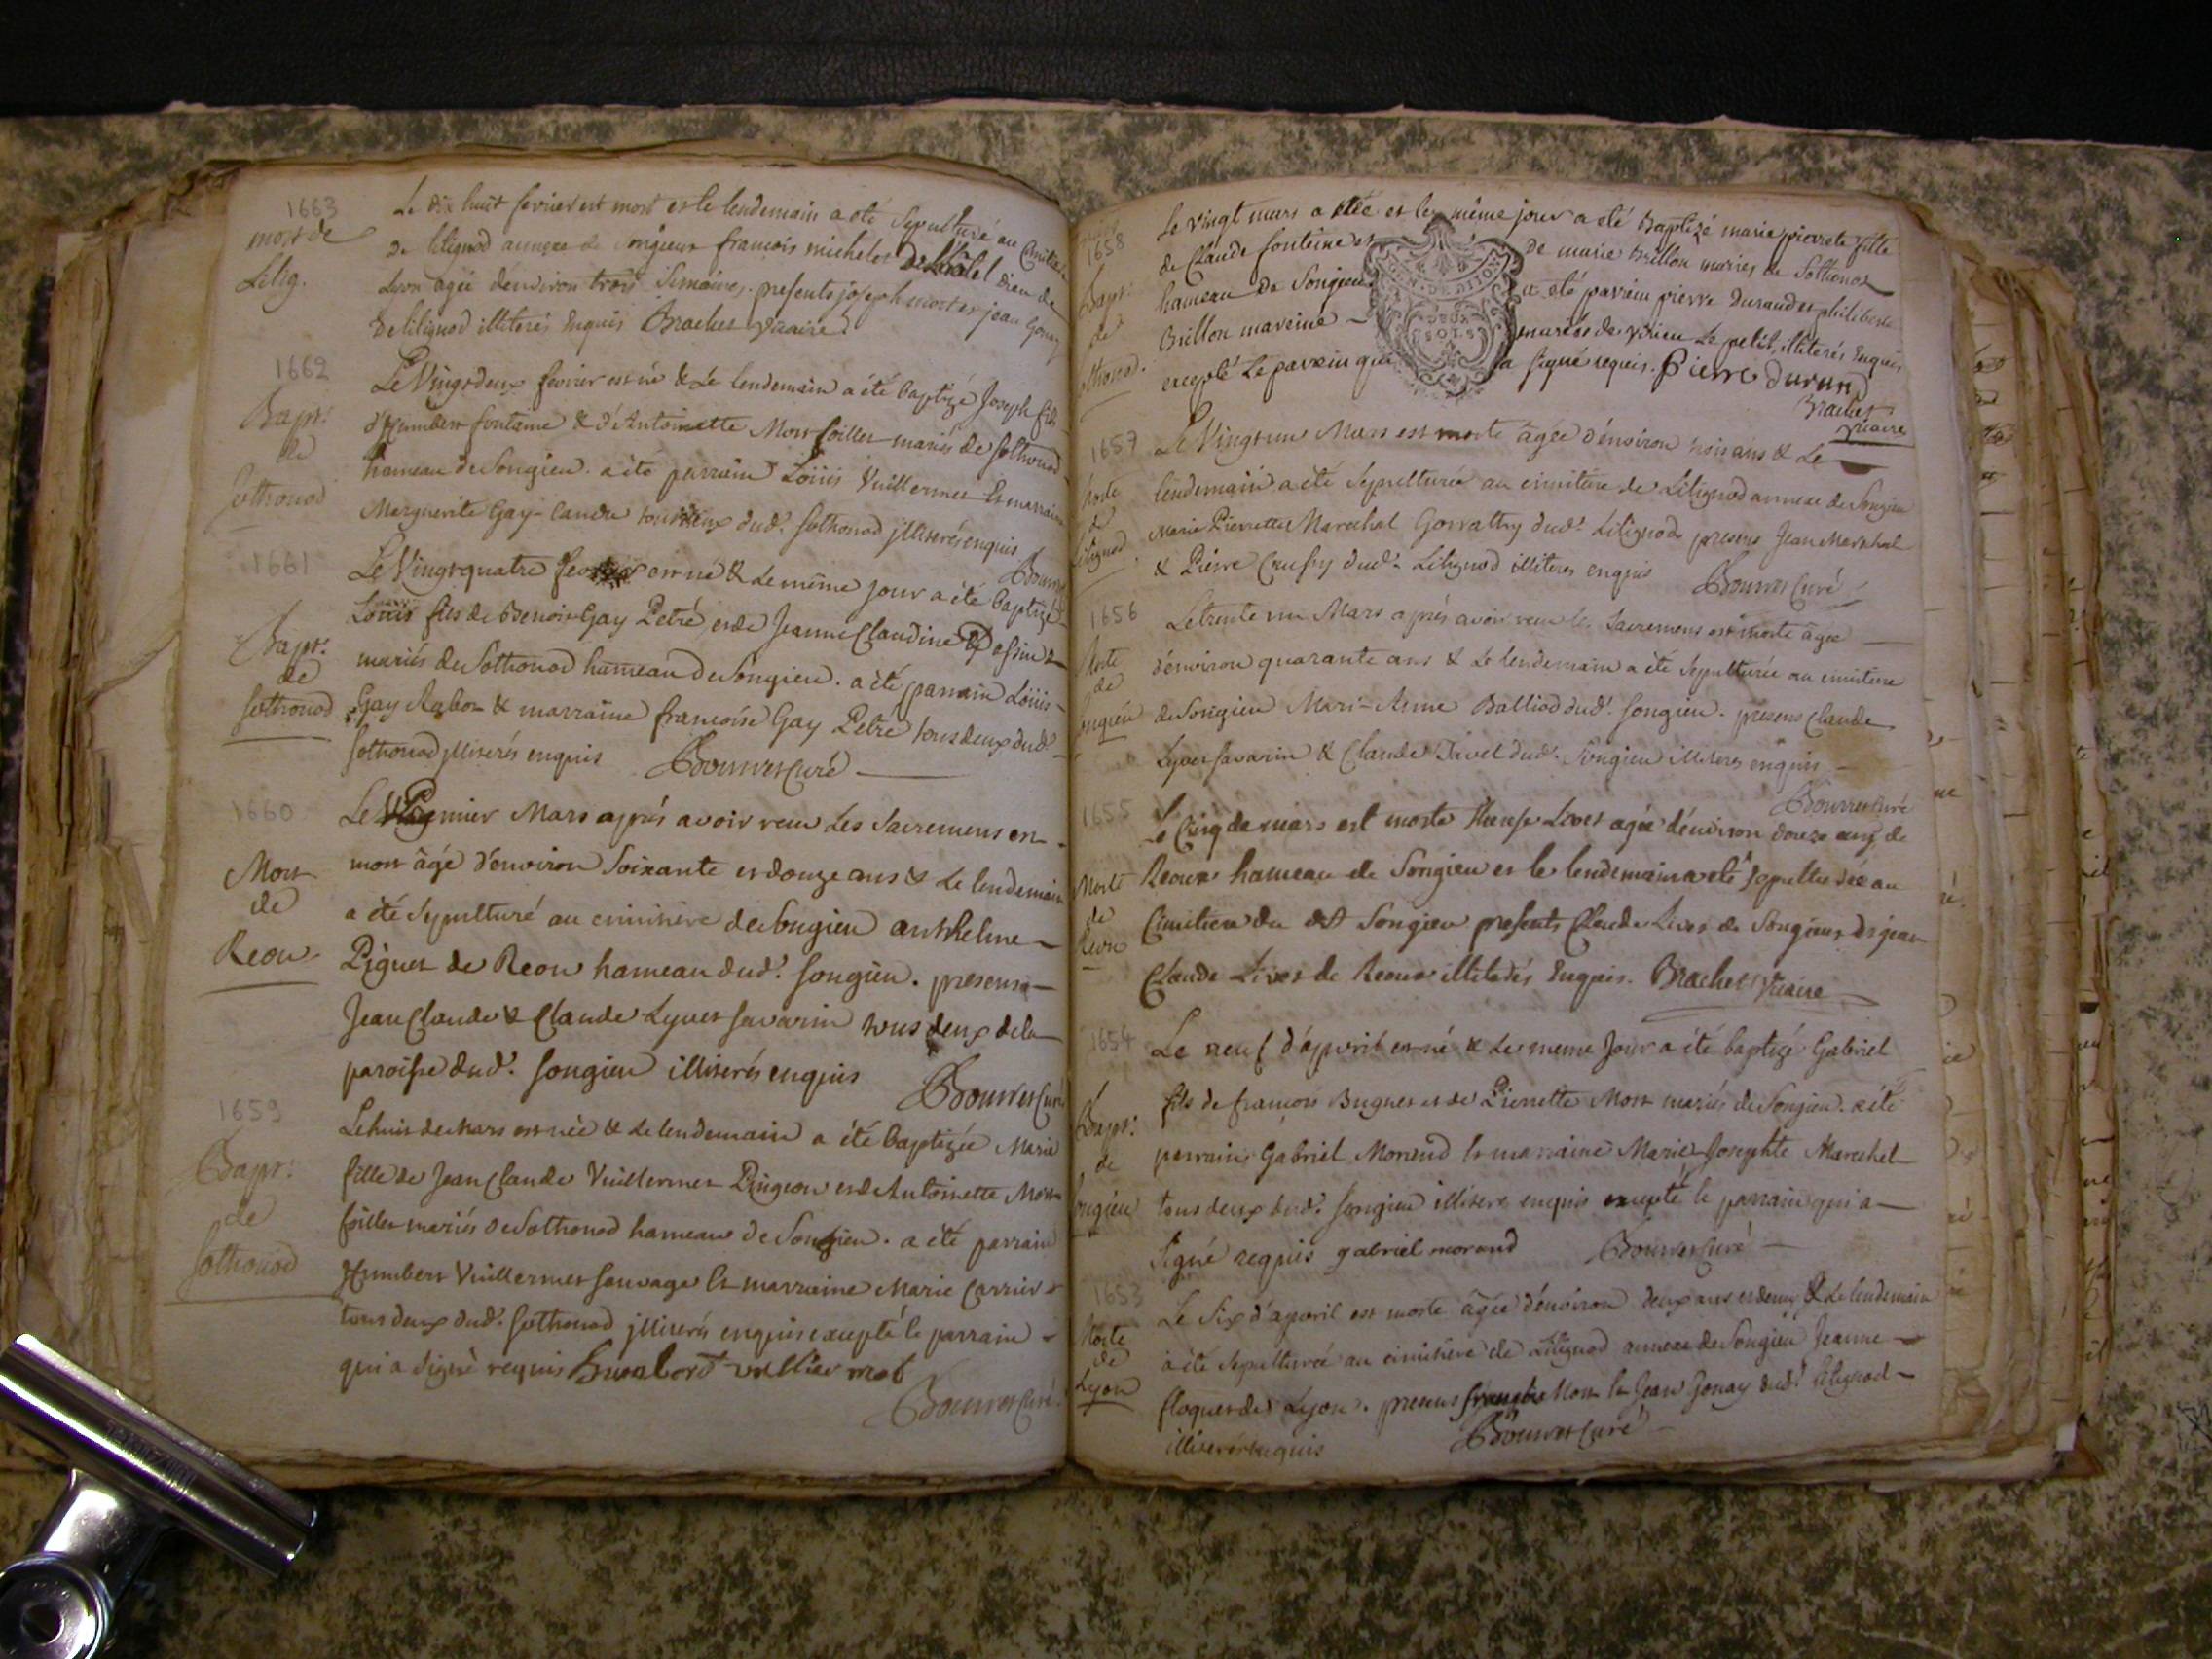 1663
mort de
Litig.
Le dix huit fevrier est mort et le lendemain a été sepulturé au Cimitiere
de litignod annexe de Songieux françois michelet de l'hotel dieu de
Lyon agé d'environ trois semaines. presents joseph mort et jean Gonay
de litignod illiterés Enquis Brachet vicaire
1662
Bapt:
de
Sothonod
Le Vingt deux fevrier est né & Le lendemain a été baptizé Joseph fils
d'Humbert fontaine & d'Antoinette Mort foillet mariés de Sothonod
hameau de Songieu. a été parrain Loüis Vuillermet Et marraine
Marguerite Gay-Candre tous deux dud.^t Sothonod jlliterés enquis
Bouvret
1661
Bapt:
de
Sothonod
Le Vingt quatre fevrier est né & Le même jour a été baptizé
Loüis fils de Benoit Gay Petré et de Jeanne Claudine
mariés de Sothonod hameau de Songieu. a été parrain Loüis
Gay Rabot & marraine françoise Gay Petré tous deux dud.^t
Sothonod jlliterés enquis Bouvret Curé
1660
Mort
de
Reou
Le Premier Mars après avoir receu Les Sacremens est
mort âgé d'environ Soixante et douze ans & Le lendemain
a été Sepulturé au cimitière de Songieu anthelme
Piguet de Reou hameau dud.^t Songieu. presens
Jean Claude & Claude Lyvet Savarin tous deux de la
paroisse dud.^t Songieu illiterés enquis
Bouvret Curé
1659
Bapt:
de
Sothonod
Le huit de Mars est née & Le lendemain a été baptizée Marie
fille de Jean Claude Vuillermet Pingeon et de Antoinette Mort
foillet mariés de Sothonod hameau de Songieu. a été parrain
Humbert Vuillermet Sauvage Et marraine Marie Carrier
tous deux dud.^t Sothonod jlliterés enquis excepté le parrain
qui a Signé requis
Bouvret Curé
1658
Bapt:
de
Le vingt mars a née et le même jour a été Baptizé marie pierrete fille
de Claude fonteine et de marie Brillon mariés de Sothonot
hameau de Songieu a été parrein pierre Durand et philiberte
Brillon mareine mariés de virieu Le petit, illiterés Enquis
excepté Le parrein qui a signé requis. Pierre durand
Brachet
vicaire
DEUX
SOLS
1657
Morte
de
Litignod
Le Vingt un Mars est morte âgée d'environ trois ans & Le
lendemain a été Sepulturée au cimitiere de Litignod annexe de Songieu
Marie Pierrette Marechal Gorrathy dud.^t Litignod presens Jean Marechal
& Pierre dud.^t Litignod illiteres enquis Bouvret Curé
1656
Morte
de
Songieu
Le trente un Mars après avoir receu les Sacremens est morte âgée
d'environ quarante ans & Le lendemain a été Sepulturée au cimitiere
de Songieu Mari-Anne Balliod dud.^t Songieu. presens Claude
Lyvet Savarin & Claude Tivel dud.^t Songieu illiteres enquis
Bouvret Curé
1655
Morte
de
Reou
Le Cinq de mars est morte Therese Livet agée d'environ douze ans de
Reoux hameau de Songieu et le lendemain a été sepulturée au
Cimitiere du dit Songieu presents Claude Livet de Songieux Et jean
Claude Livet de Reoux illiterés Enquis. Brachet vicaire
1654
Bapt:
de
Songieu
Le neuf d'apvril est né & Le meme Jour a été baptizé Gabriel
fils de françois Buguet et de Pierrette Mort mariés de Songieu. a été
parrain Gabriel Morand Et marraine Marie-Josephte Marechal
tous deux dud.^t Songieu illiteré enquis excepté le parrain qui a
Signé requis gabriel morand Bouvret Curé
1653
Morte
de
Lyon
Le Six d'apvril est morte âgée d'environ deux ans et demy & Le lendemain
a été Sepulturée au cimitière de Litignod annexe de Songieu Jeanne
floquet de Lyon. presens françois Mort Et Jean Gonay dud.^t Litignod
illiterés enquis Bouvret Curé